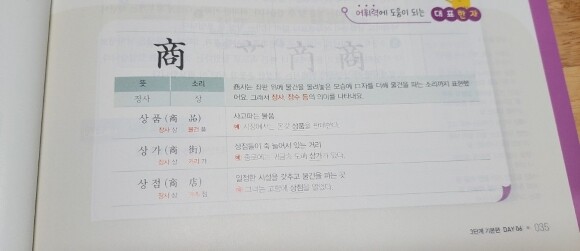 어휘력에 도움이 되는 대표한자
商
뜻 소리
장사 상
商자는 좌판 위에 물건을 올려놓은 모습에 口자를 더해 물건을 파는 소리까지 표현했
어요. 그래서 장사, 장수 등의 의미를 나타내요.
상품(商品) 사고파는 물품
장사 상 물건 품 예 시장에서는 온갖 상품을 판매한다.
상가(商街) 상점들이 죽 늘어서 있는 거리
장사 상 거리 가 상가
상점(商店) 일정한 시설을 갖추고 물건을 파는 곳
장사 상 가게 점 예 그녀는 고향에 상점을 열었다.
3단계 기본편 DAY 06 035